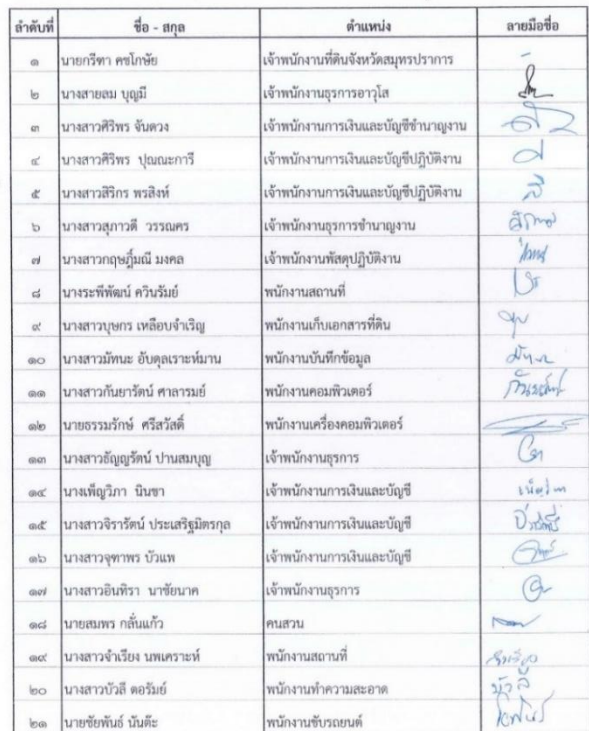 ลำดับที่ ชื่อ - สกุล ตำแหน่ง ลายมือชื่อ
๑ นายกรีฑา คชโกษัย เจ้าพนักงานที่ดินจังหวัดสมุทรปราการ
๒ นางสายลม บุญมี เจ้าพนักงานธุรการอาวุโส
๓ นางสาวศิริพร จันดวง เจ้าพนักงานการเงินและบัญชีชำนาญงาน
๔ นางสาวศิริพร ปุณณะการี เจ้าพนักงานการเงินและบัญชีปฏิบัติงาน
๕ นางสาวสิริกร พรสิงห์ เจ้าพนักงานการเงินและบัญชีปฏิบัติงาน
๖ นางสาวสุภาวดี วรรณคร เจ้าพนักงานธุรการชำนาญงาน
๗ นางสาวกฤษฎิ์มณี มงคล เจ้าพนักงานพัสดุปฏิบัติงาน
๘ นางระพีพัฒน์ ควินรัมย์ พนักงานสถานที่
๙ นางสาวบุษกร เหลือบจำเริญ พนักงานเก็บเอกสารที่ดิน
๑๐ นางสาวมัทนะ อับดุลเราะห์มาน พนักงานบันทึกข้อมูล
๑๑ นางสาวกันยารัตน์ ศาลารมย์ พนักงานคอมพิวเตอร์
๑๒ นายธรรมรักษ์ ศรีสวัสดิ์ พนักงานเครื่องคอมพิวเตอร์
๑๓ นางสาวธัญญรัตน์ ปานสมบุญ เจ้าพนักงานธุรการ
๑๔ นางเพ็ญวิภา นินชา เจ้าพนักงานการเงินและบัญชี
๑๕ นางสาวจิรารัตน์ ประเสริฐมิตรกุล เจ้าพนักงานการเงินและบัญชี
๑๖ นางสาวจุฑาพร บัวแพ เจ้าพนักงานการเงินและบัญชี
๑๗ นางสาวอินทิรา นาชัยนาค เจ้าพนักงานธุรการ
๑๘ นายสมพร กลั่นแก้ว คนสวน
๑๙ นางสาวจำเรียง นพเคราะห์ พนักงานสถานที่
๒๐ นางสาวบัวลี ดอรัมย์ พนักงานทำความสะอาด บัวลี
๒๑ นายชัยพันธ์ นันต๊ะ พนักงานขับรถยนต์